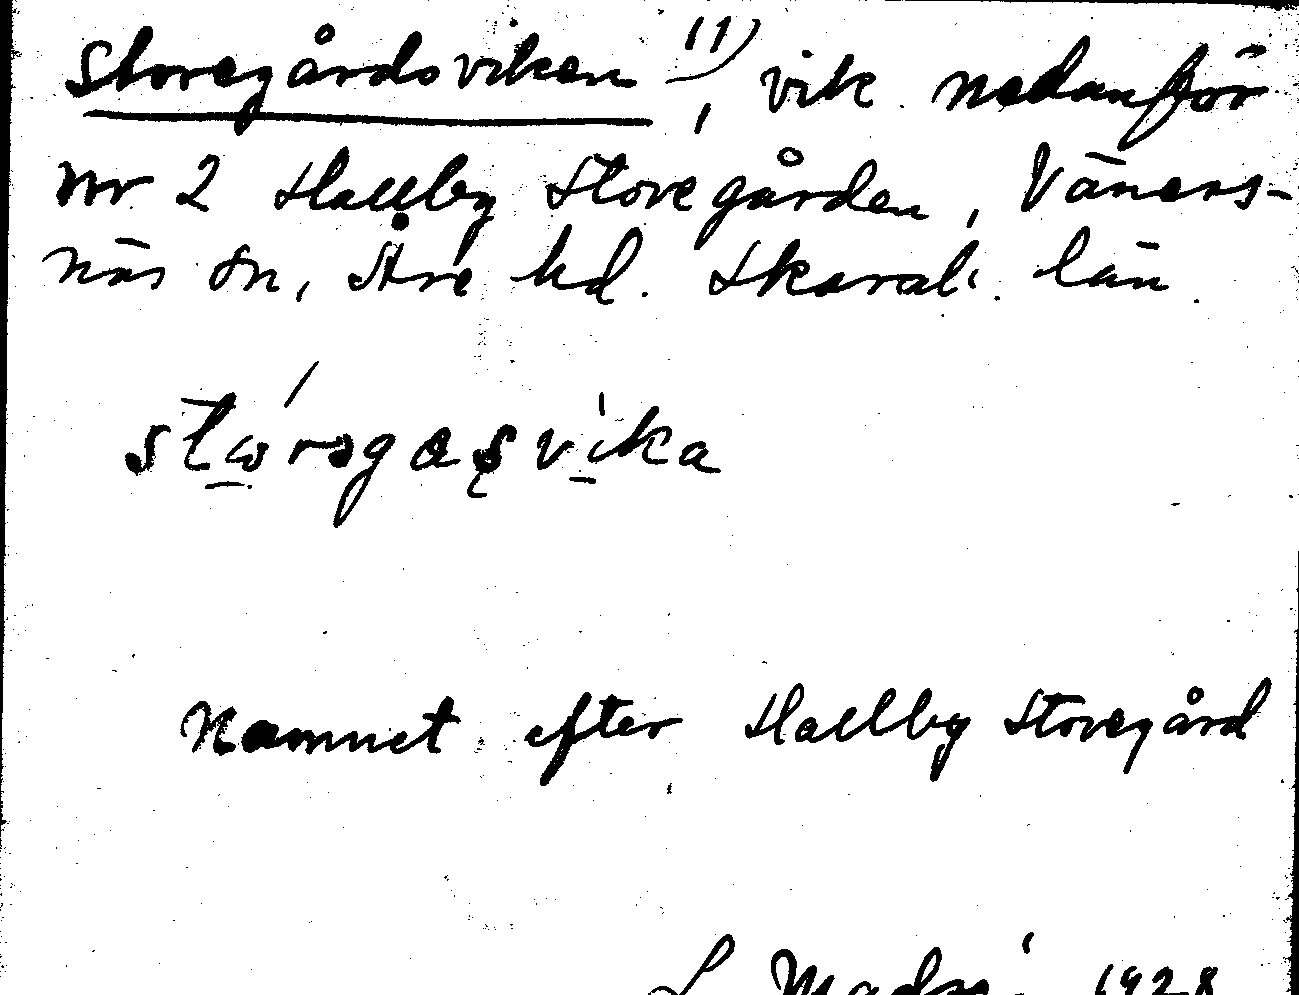 Storegårdsviken 11), vik nedanför
Nr 2 Hallby Storegården, Väners-
näs sn, Åse hd. Skarab. län.
stωrəgasvika
Namnet efter Hallby Storegård
1928